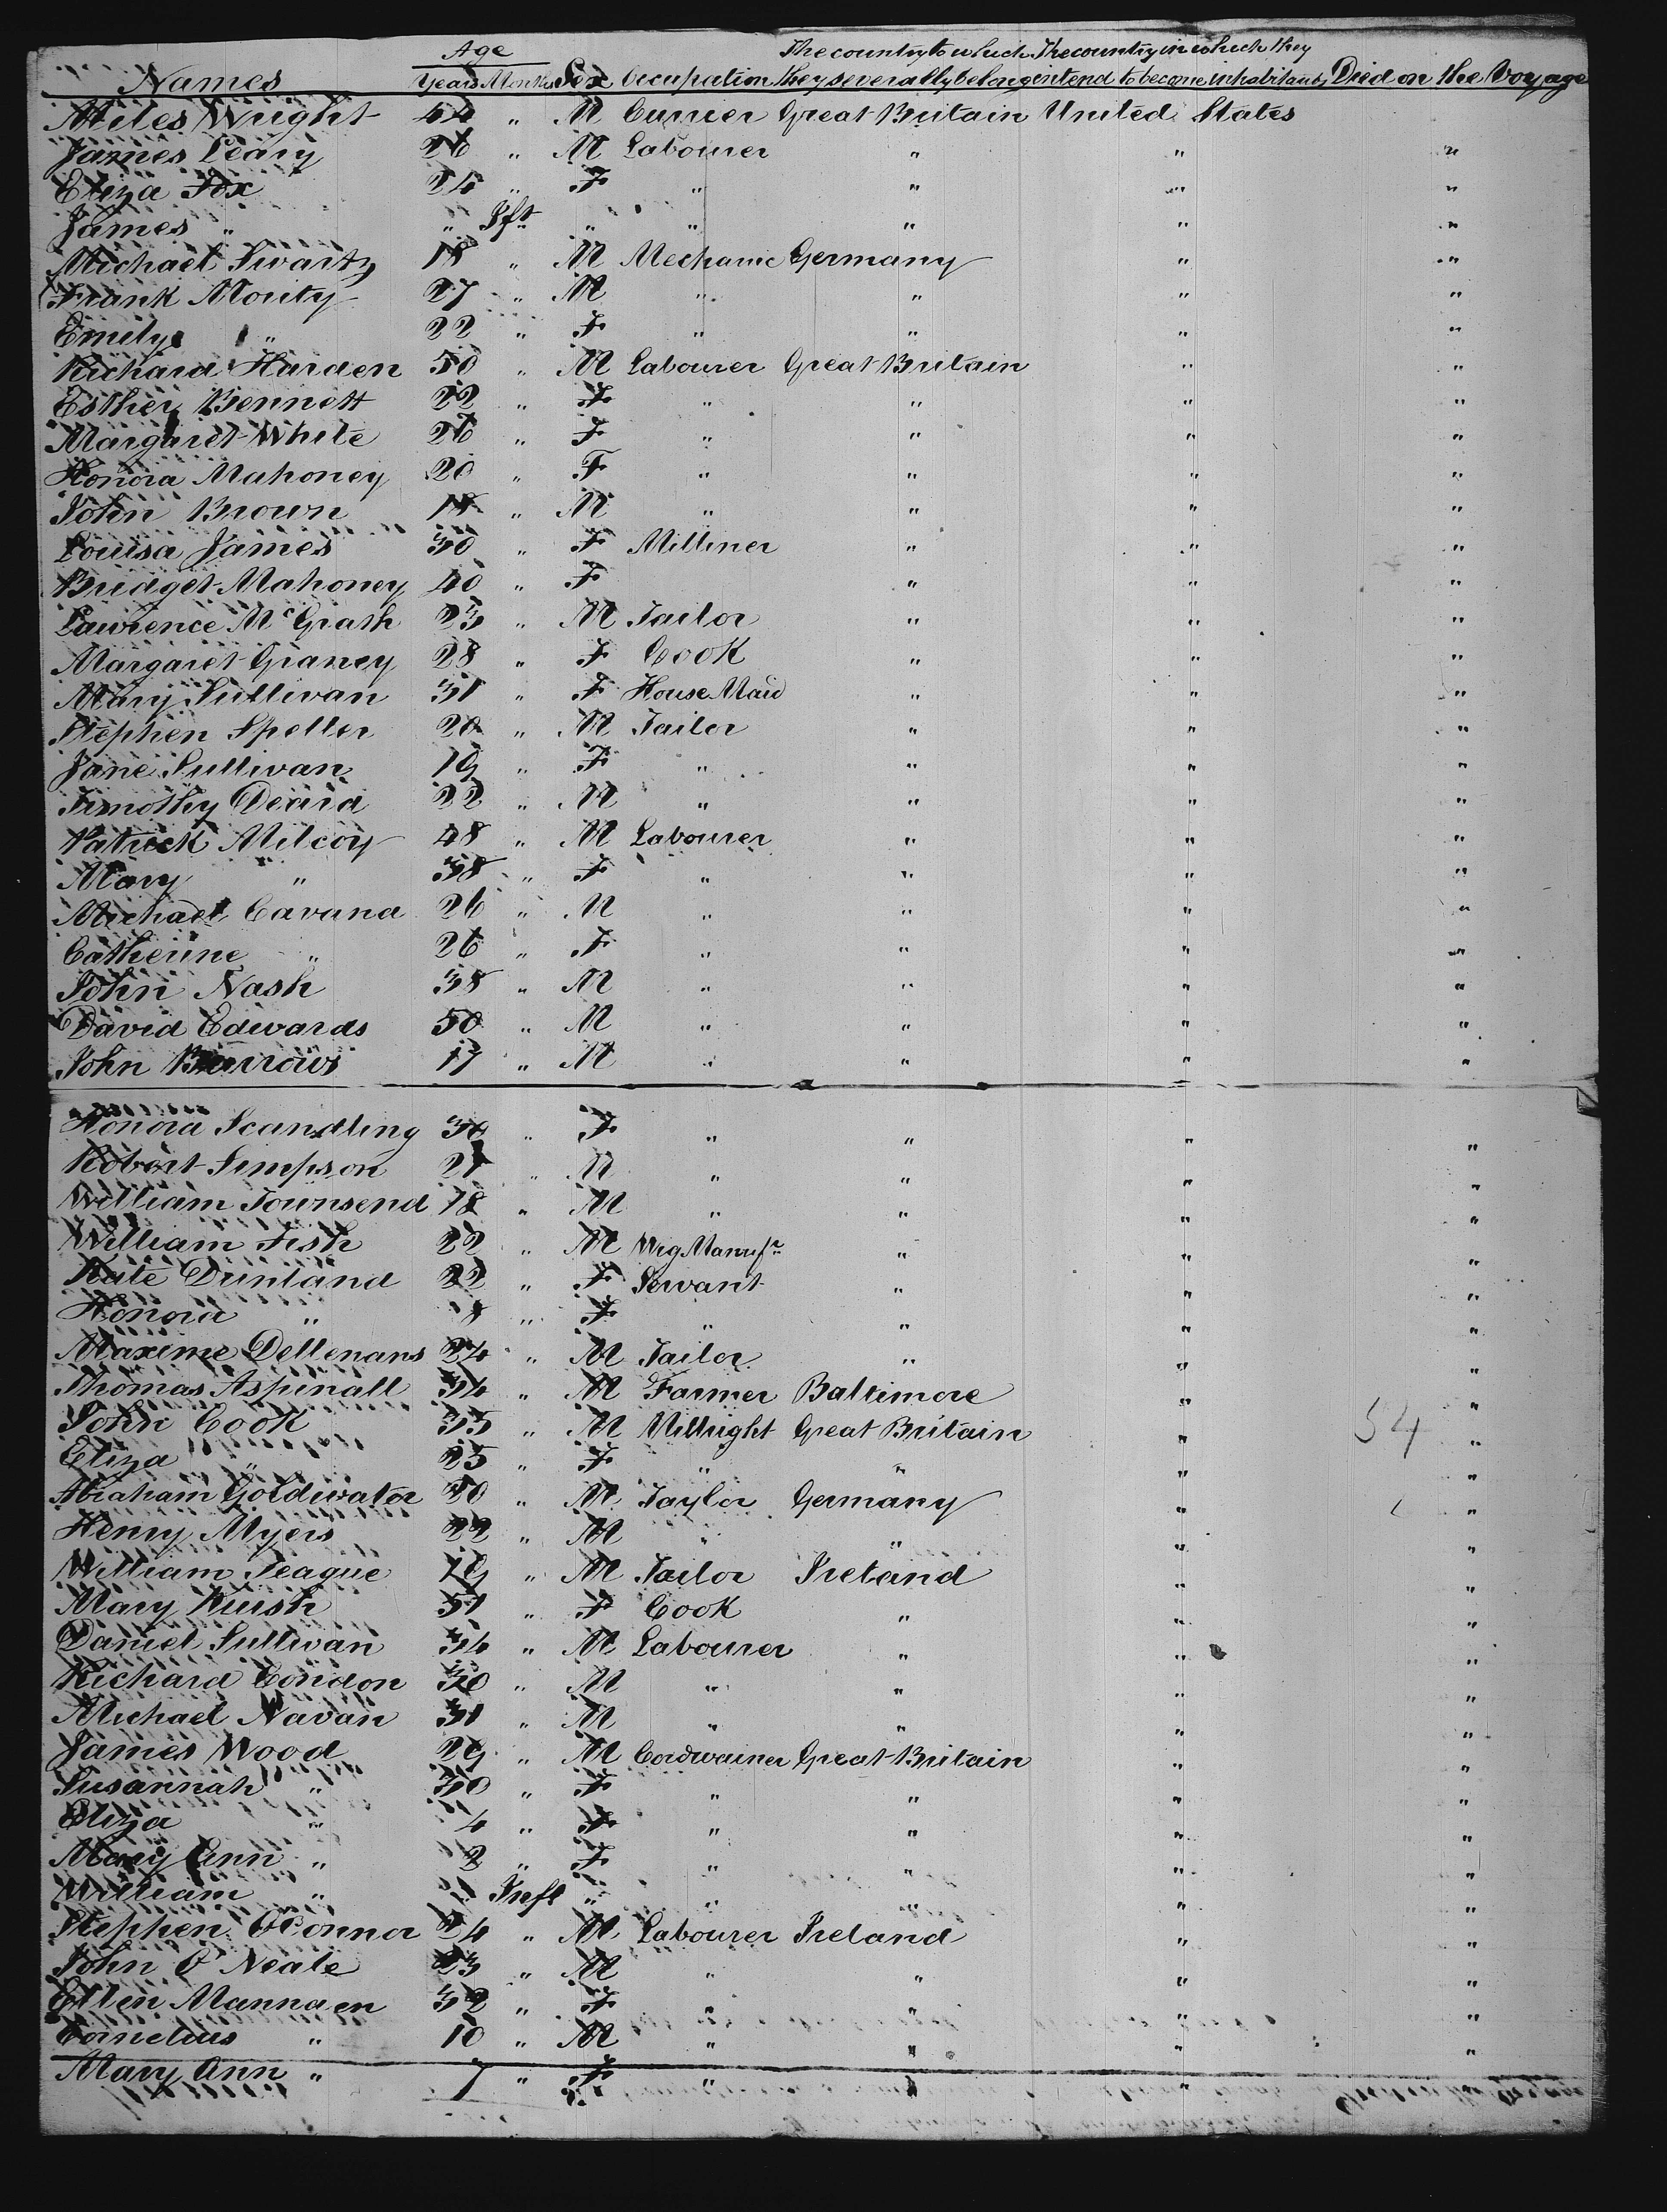 Age The country to which The country in which they
Names Years Months Sex Occupation they severally belong intend to become inhabitants Died on the Voyage
Miles Wright 44 " M Currier Great Britain United States
James Leary 26 " M Labourer " " "
Eliza Fox 24 " F " " " "
James " " Ift " " " " "
Michael Swartz 18 " M Mechanic Germany " "
Frank Mority 27 " M " " " "
Emily " 22 " F " " " "
Richard Harden 50 " M Labourer Great Britain " "
Esther Bennett 22 " F " " " "
Margaret White 26 " F " " " "
Honora Mahoney 20 " F " " " "
John Brown 18 " M " " " "
Louisa James 30 " F Milliner " " "
Bridget Mahoney 40 " F " " "
Lawrence McGrath 23 " M Tailor " " "
Margaret Graney 28 " F Cook " " "
Mary Sullivan 31 " F House Maid " " "
Stephen Speller 20 " M Tailor " " "
Jane Sullivan 19 " F " " " "
Timothy Deard 22 " M " " " "
Patrick Milcoy 48 " M Labourer " " "
Mary " 38 " F " " " "
Michael Cavana 26 " M " " " "
Catherine " 26 " F " " " "
John Nash 38 " M " " " "
David Edwards 50 " M " " " "
John Burrows 17 " M " " " "
Honora Scandling 30 " F " " " "
Robert Simpson 21 " M " " " "
William Townsend 18 " M " " " "
William Fish 22 " M Wig Manufr " " "
Kate Dunland 22 " F Servant " " "
Honora " 8 " F " " " "
Maxime Dellenans 24 " M Tailor " " "
Thomas Aspinall 34 " M Farmer Baltimore " "
John Cook 35 " M Millright Great Britain " 54 "
Eliza " 25 " F " " " "
Abraham Goldwater 20 " M Taylor Germany " "
Henry Myers 22 " M " " " "
William Teague 19 " M Tailor Ireland " "
Mary Kuish 51 " F Cook " " "
Daniel Sullivan 34 " M Labourer " " "
Richard Condon 30 " M " " " "
Michael Navan 31 " M " " " "
James Wood 29 " M Cordwainer Great Britain " "
Susannah " 30 " F " " " "
Eliza " 4 " F " " " "
Mary Ann " 2 " F " " " "
William " " Inft " " " " "
Stephen O'Connor 24 " M Labourer Ireland " "
John O Neale 23 " M " " " "
Ellen Mannaen 32 " F " " " "
Cornelius " 10 " M " " " "
Mary Ann " 7 " F " " "